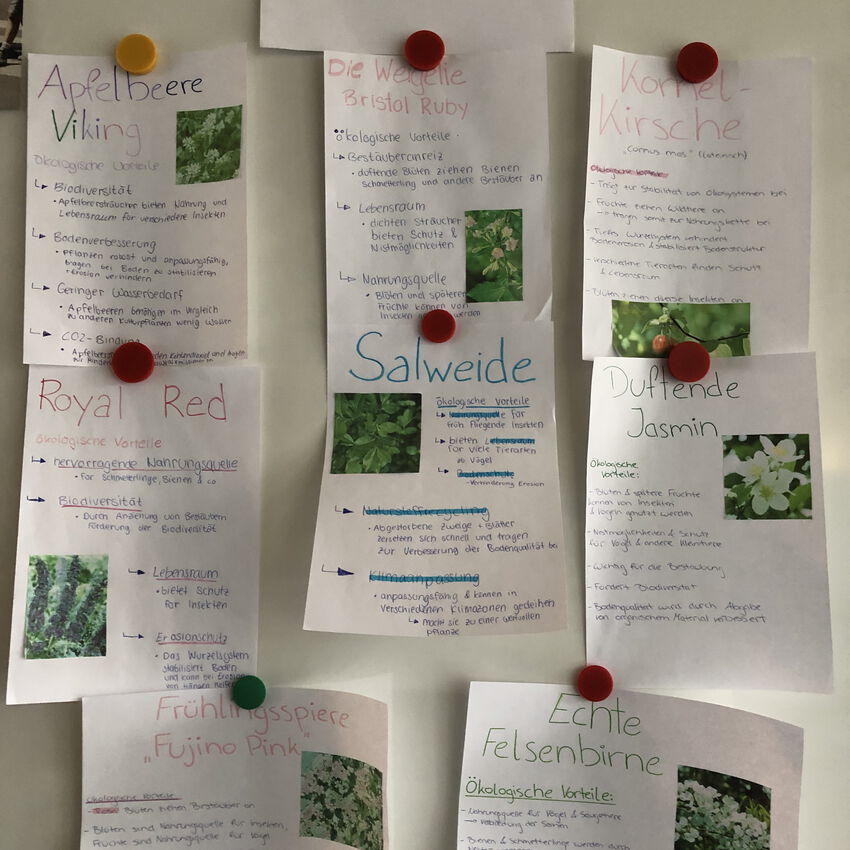 Apfelbeere
Viking
ökologische Vorteile
Biodiversität
• Apfelbeersträucher bieten Nahrung und
Lebensraum für verschiedene Insekten
Bodenverbesserung
• Pflanzen robust und anpassungsfähig,
tragen bei Boden zu stabilisieren
+ Erosion verhindern
Geringer Wasserbedarf
• Apfelbeeren benötigen im Vergleich
zu anderen Kulturpflanzen wenig Wasser
CO2-Bindung
Die Weigelie
Bristol Ruby
ökologische Vorteile
Bestäuberanreiz
• duftende Blüten ziehen Bienen
Schmetterling und andere Bestäuber an
Lebensraum
• dichten Sträucher
bieten Schutz &
Nistmöglichkeiten
Nahrungsquelle
• Blüten und spätere
Früchte können von
Insekten werden
Kornel-
Kirsche
"Cornus mas" (Lateinisch)
ökologische Vorteile
- Trägt zur Stabilität von Ökosystemen bei
- Früchte ziehen Wildtiere an
→ tragen somit zur Nahrungskette bei
- Tiefes Wurzelsystem verhindert
Bodenerosion & stabilisiert Bodenstruktur
- verschiedene Tierarten finden Schutz
& Lebensraum
- Blüten ziehen diverse Insekten an
Royal Red
ökologische Vorteile
hervorragende Nahrungsquelle
• für Schmetterlinge, Bienen & co
Biodiversität
• Durch Anziehung von Bestäubern
Förderung der Biodiversität
Lebensraum
• bietet Schutz
für Insekten
Erosionschutz
• Das Wurzelsystem
stabilisiert Boden
und kann bei Erosion
von Hängen helfen
Salweide
ökologische Vorteile
Nahrungsquelle für
früh fliegende Insekten
bieten Lebensraum
für viele Tierarten
zb Vögel
Bodenschutz
- Verhinderung Erosion
Naturstoffrecycling
• Abgestorbene Zweige + Blätter
zersetzen sich schnell und tragen
zur Verbesserung der Bodenqualität bei
Klimaanpassung
• anpassungsfähig & können in
verschiedenen Klimazonen gedeihen
Macht sie zu einer wertvollen
pflanze
Duftende
Jasmin
Ökologische
Vorteile:
- Blüten & spätere Früchte
können von Insekten
& Vögeln genutzt werden
- Nistmöglichkeiten & Schutz
für Vögel & andere Kleintiere
- Wichtig für die Bestäubung
- Fördert Biodiversität
- Bodenqualität wird durch Abgabe
von organischem Material verbessert
Frühlingsspiere
„Fujino Pink"
ökologische Vorteile
- Blüten ziehen Bestäuber an
- Blüten sind Nahrungsquelle für Insekten,
Früchte sind Nahrungsquelle für Vögel
Echte
Felsenbirne
Ökologische Vorteile:
- Nahrungsquelle für Vögel & Säugetiere
→ Verbreitung der Samen
- Bienen & Schmetterlinge werden durch